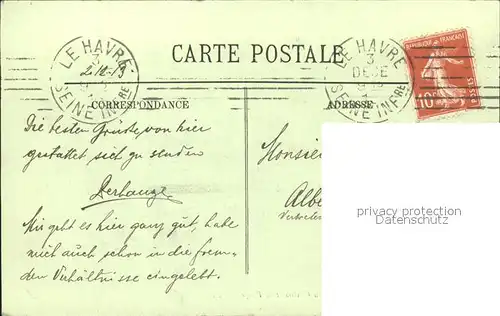 LE HAVRE
3
SEINE INFRE
2.12.13
CARTE POSTALE
LE HAVRE
3
DECE
SEINE INFRE
REPUBLIQUE FRANCAISE
10
POSTES
CORRESPONDANCE
ADRESSE
Die besten Grüsse von hier
gestattet sich zu senden
Mir geht es hier ganz gut, habe
mich auch schon in die frem-
den Verhältnisse eingelebt.
Monsie
Albe
Vertreter
privacy protection
Datenschutz